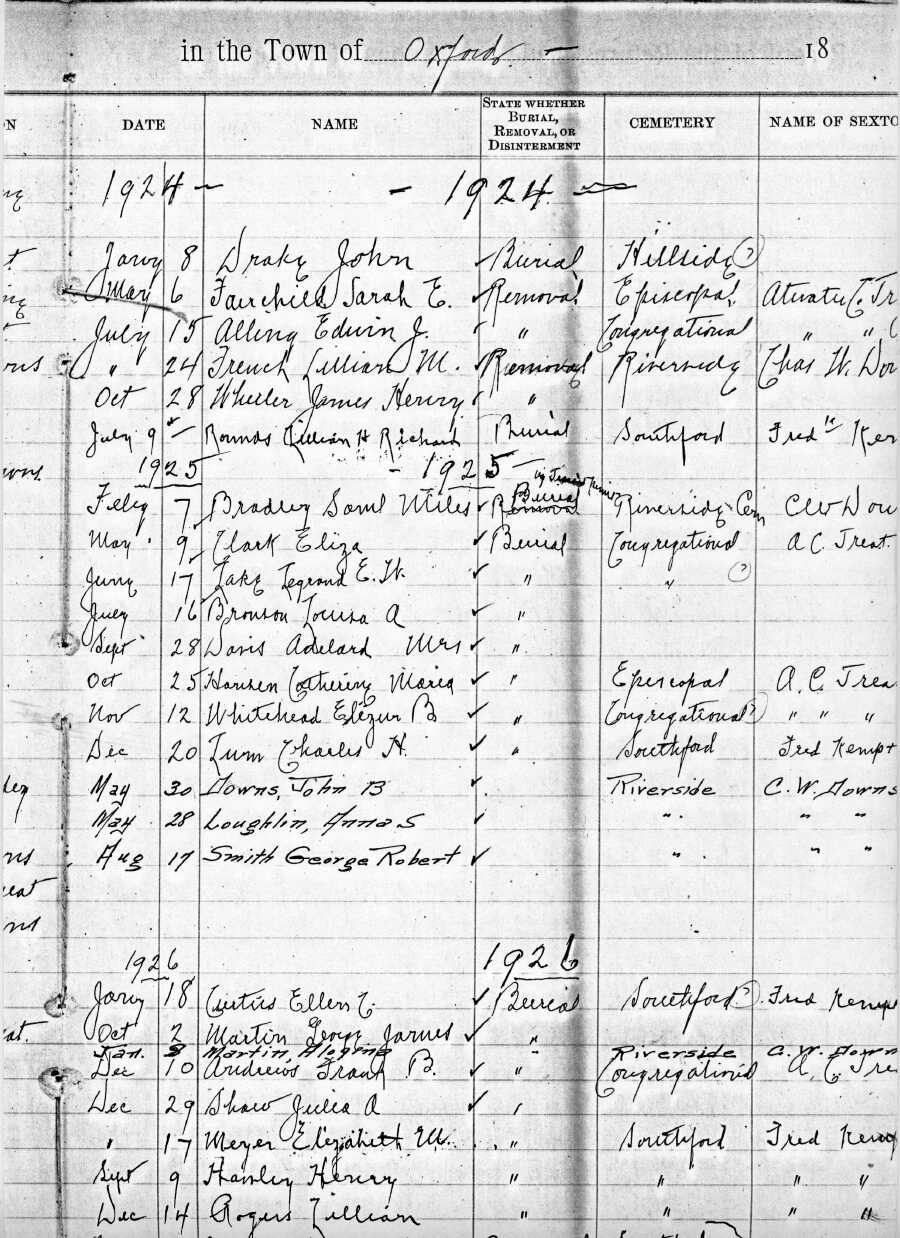 in the Town of Oxford — 18
DATE NAME STATE WHETHER BURIAL, REMOVAL, OR DISINTERMENT CEMETERY NAME OF SEXTO
1924 — - 1924 —
Jany 8 Drake John ✓ Burial Hillside (?)
May 6 Fairchild Sarah E. ✓ Removal Episcopal Atwater C. Tr
July 15 Alling Edwin J. ✓ " Congregational " " C
" 24 French Lillian M. ✓ Removal Riverside Chas W. Dow
Oct 28 Wheeler James Henry ✓ "
July 9 — Rounds Lillian H Richard Burial Southford Fred Kem
1925 - 1925 —
Feby 7 Bradley Saml Miles ✓ Removal Burial Riverside Cem C W Dow
May 9 Clark Eliza ✓ Burial Congregational A C. Treat.
June 17 Lake Legrand E. W. ✓ " " (?)
July 16 Bronson Louisa A ✓ "
Sept 28 Davis Adelard Mrs ✓ "
Oct 25 Hansen Catherine Maria ✓ " Episcopal A. C. Trea
Nov 12 Whitehead Elizur B ✓ " Congregational (?) " " "
Dec 20 Lum Charles H. ✓ " Southford Fred Kempt
May 30 Downs, John B ✓ Riverside C. W. Downs
May 28 Loughlin, Anna S ✓ " " "
Aug 17 Smith George Robert ✓ " " "
1926 1926
Jany 18 Curtiss Ellen C. ✓ Burial Southford (?) Fred Kemp
Oct 2 Martin George James ✓ "
Jan. 8 Martin, " Riverside C. W. Down
Dec 10 Andrews Frank B. ✓ " Congregational A. C. Tre
Dec 29 Shaw Julia A ✓ "
" 17 Meyer Elizabeth M. " Southford Fred Kemp
Sept 9 Hanley Henry " " " "
Dec 14 Rogers Lillian " " " "